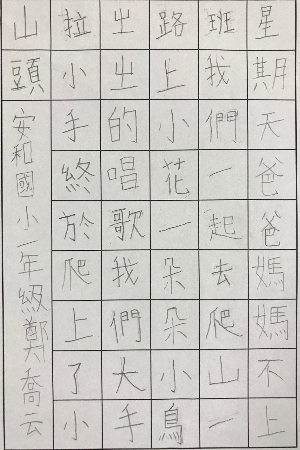 星期天爸爸媽媽不上
班我們一起去爬山一
路上小花一朵朵小鳥
ㄓㄓ的唱歌我們大手
拉小手終於爬上了小
山頭
安和國小一年級鄭喬云